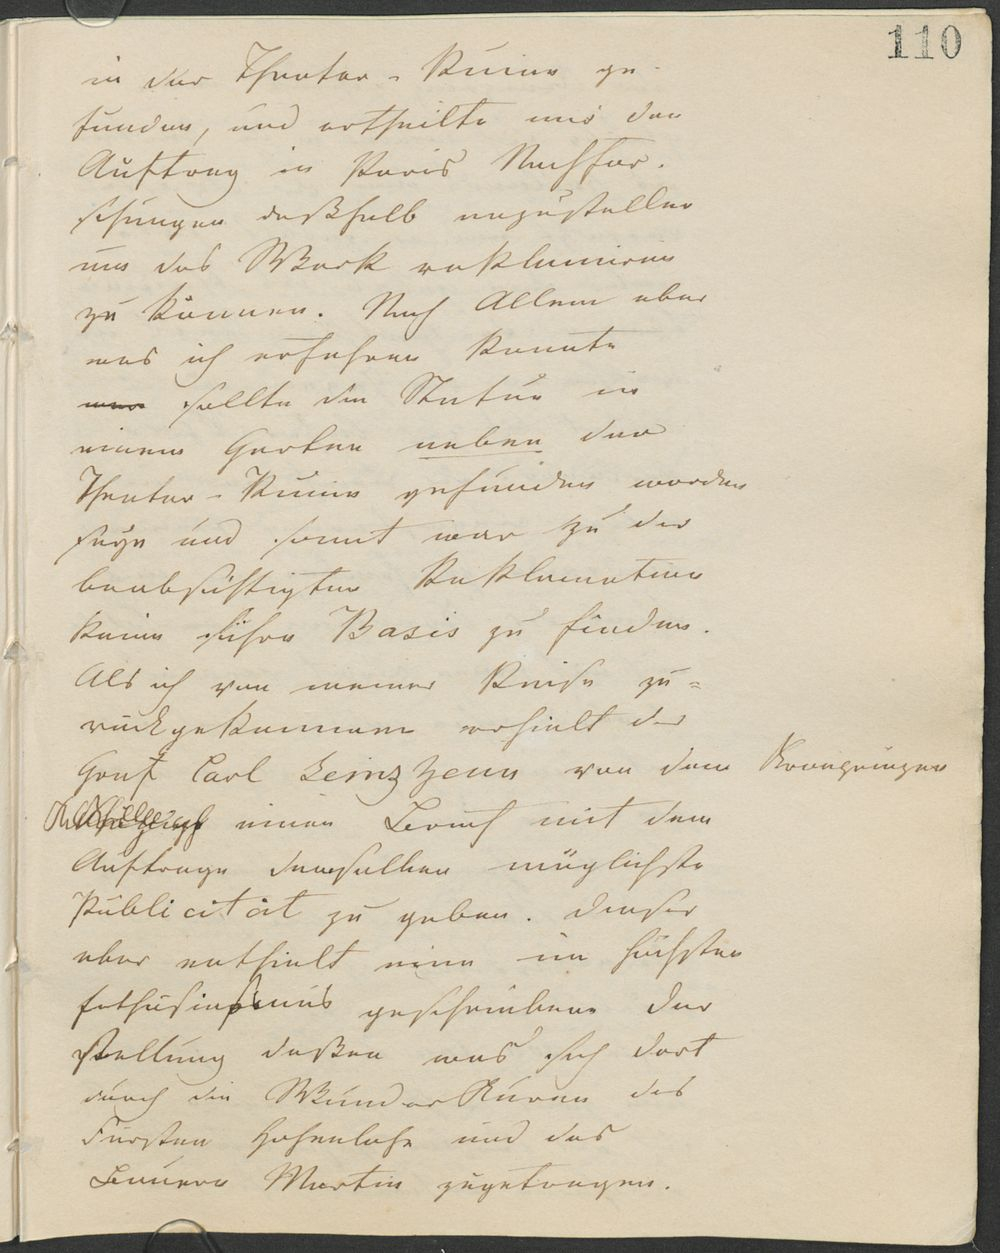 110
in der Theater-Ruine ge-
funden, und ertheilte mir den
Auftrag in Paris Nachfor-
schungen deßhalb anzustellen
um das Werk reklamiren
zu können. Nach Allem aber
was ich erfahren konnte
sollte die Statue in
einem Garten neben der
Theater-Ruine gefunden worden
seyn und somit war zu der
beabsichtigten Reklamation
keine sichere Basis zu finden.
Als ich von meiner Reise zu=
rückgekommen erhielt der
Graf Carl Seinsheim von dem Kronprinzen
einen Brief mit dem
Auftrage demselben möglichste
Publicität zu geben. Dieser
aber enthielt eine im höchsten
Enthusiasmus geschriebene Dar
stellung deßen was sich dort
durch die Wunder Kuren des
Fürsten Hohenlohe und des
Bauern Martin zugetragen.